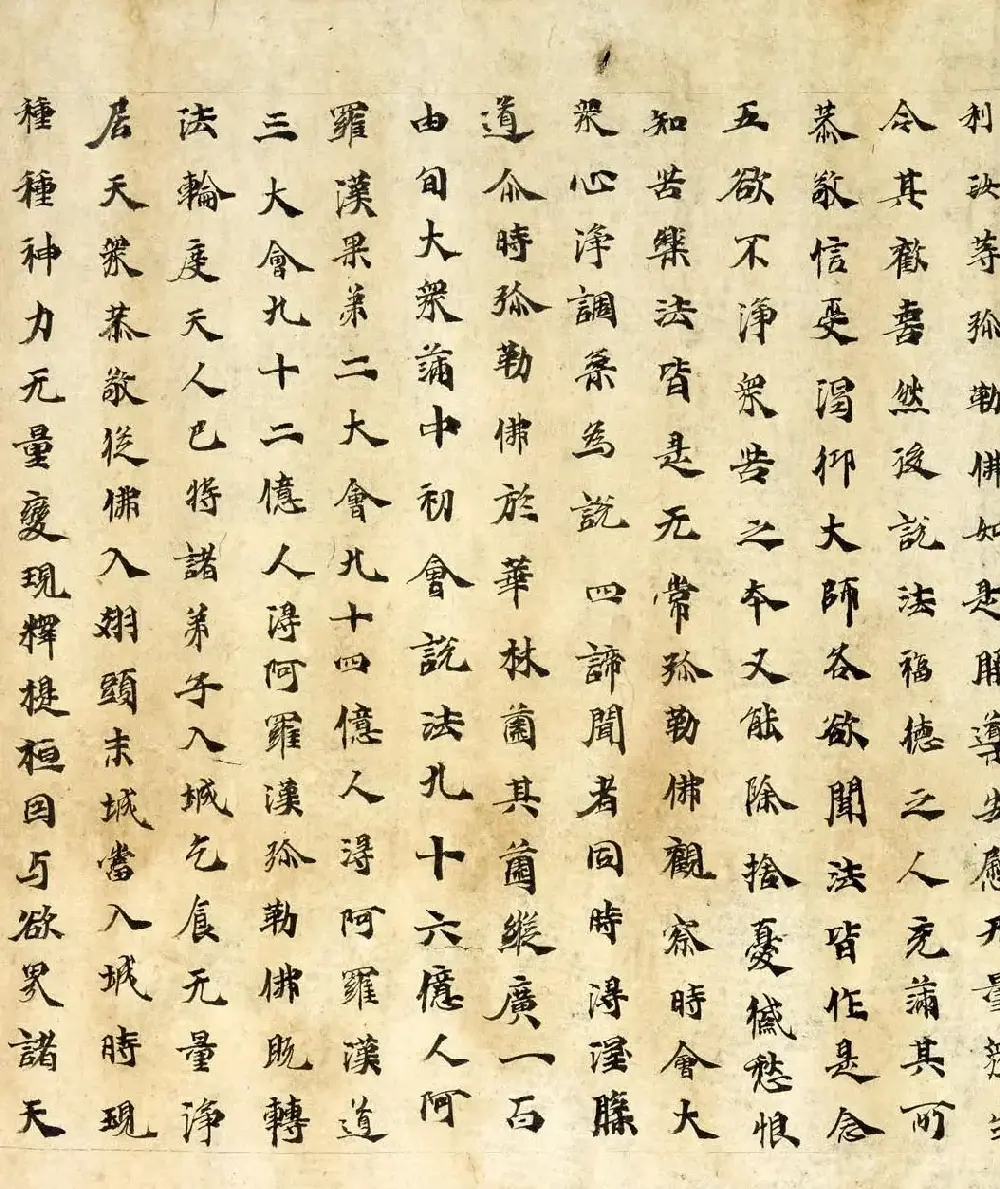 利殃等弥勒佛如是開導安慰无量衆生
令其歡喜然後說法福德之人充滿其所
恭敬信受渴仰大師各欲聞法皆作是念
五欲不淨衆苦之本又能除捨憂慼愁恨
知苦樂法皆是无常弥勒佛觀察時會大
衆心淨調柔為說 四諦聞者同時得涅槃
道尒時弥勒佛於華林薗其薗縱廣一百
由旬大衆滿中初會說法九十六億人阿
羅漢果第二大會九十四億人得阿羅漢道
三大會九十二億人得阿羅漢弥勒佛既轉
法輪度天人已將諸弟子入城乞食无量淨
居天衆恭敬從佛入翅頭末城當入城時現
種種神力无量變現釋提桓因与欲界諸天